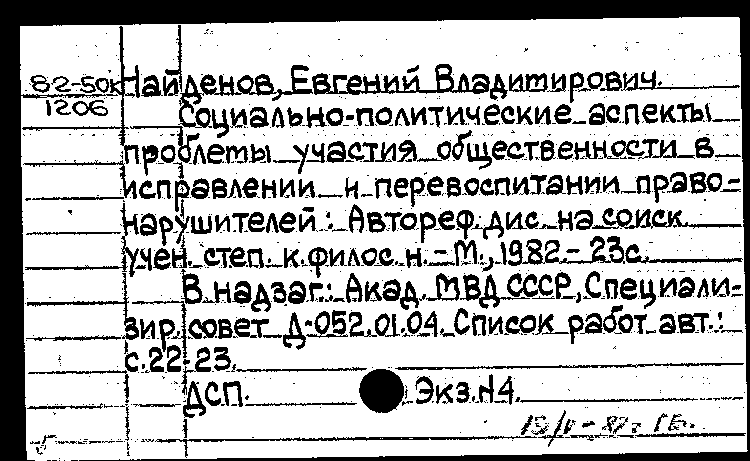 82-50к Найденов, Евгений Владимирович.
1206 Социально-политические аспекты
проблемы участия общественности в
исправлении и перевоспитании право-
нарушителей: Автореф. дис. на соиск.
учен. степ. к. филос. н. - М., 1982. - 23с.
В надзаг.: Акад. МВД СССР, Специали-
зир. совет Д-052.01.04. Список работ авт.:
с. 22-23.
ДСП. Экз. N4.